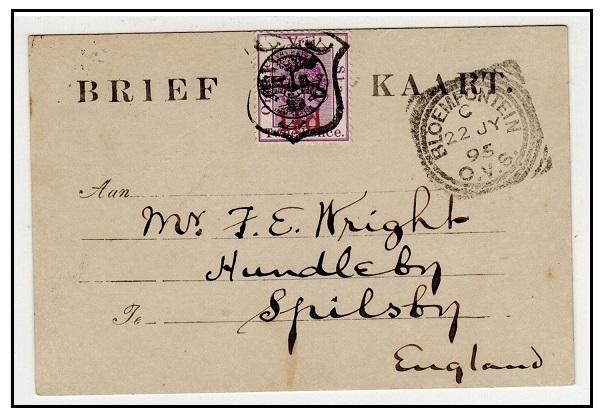 BRIEF KAART.
Twee Pence.
BLOEMFONTEIN
C
22 JY
95
O.V.S.
Aan
Mr. F. E. Wright
Hundleby
Te Spilsby
England